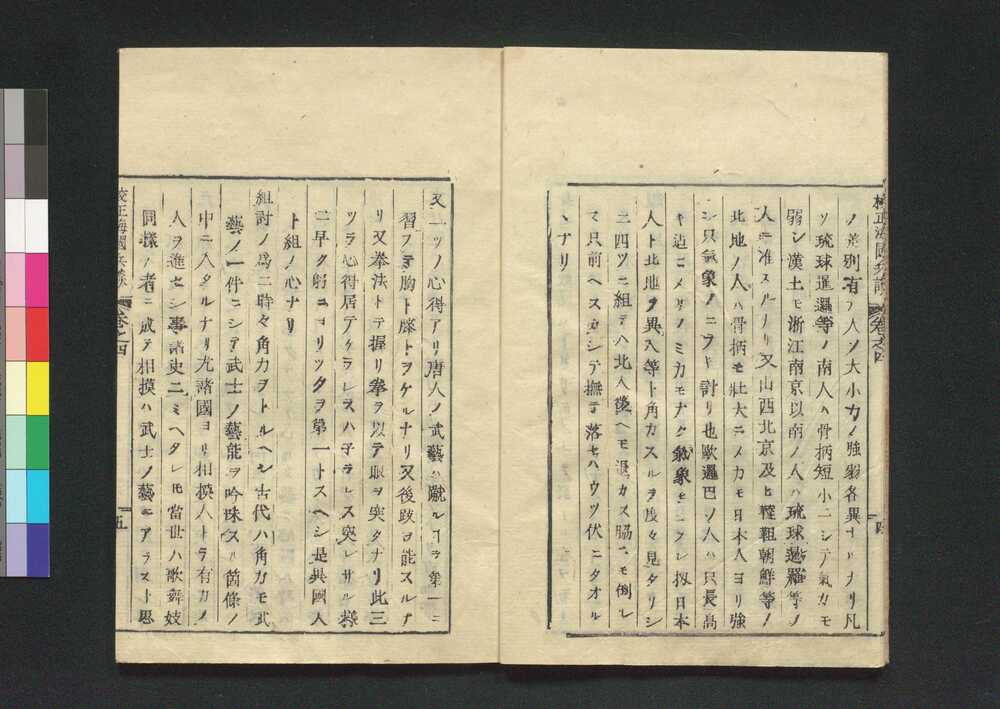 校正海國兵談 卷之四
四
ノ差別有テ人ノ大小力ノ強弱各異ナルナリ凡
ソ琉球暹邏等ノ南人ハ骨柄短小ニシテ氣力モ
弱シ漢土モ浙江南京以南ノ人ハ琉球暹羅等ノ
人ニ准スルナリ又山西北京及ヒ韃靼朝鮮等ノ
北地ノ人ハ骨柄モ壮大ニメ力モ日本人ヨリ強
シ只氣象ノニフキ討リ也歐邏巴ノ人ハ只長高
キ迠ニメサノミ力モナク氣象モニフレ扨日本
人ト北地ヲ異人等ト角力スルヲ度々見タリシ
ニ四ツニ組テハ北人後ヘモ退カス脇ヘモ倒レ
ス只前ヘスカシテ撫テ落セハウツ伏ニタオル
ヽナリ
又一ツノ心得アリ唐人ノ武藝ハ蹴ルコヲ業一ニ
習フテ胸ト膝トヲケルナリ又後跂ロ能スルナ
リ又拳法トテ握リ拳ヲ以テ眼ヲ突クナリ此三
ツヲ心得居テケラレス八子ラレス突レサル様
ニ早ク躬ニヨリツクヲ第一トスヘシ是異國人
ト組ノ心ナリ
組討ノ爲ニ時々角力ヲトルヘシ古代ハ角力モ武
藝ノ一件ニシテ武士ノ藝能ヲ吟味スル箇條ノ
中ニ入タルナリ尤諸國ヨリ相摸人トラ有力ノ
人ヲ進セシ事諸史ニミヘタレモ當世ハ歌舞妓
同様ノ者ニ成テ相摸ハ武士ノ藝ニアラスト思
校正海國兵談 卷之四
五